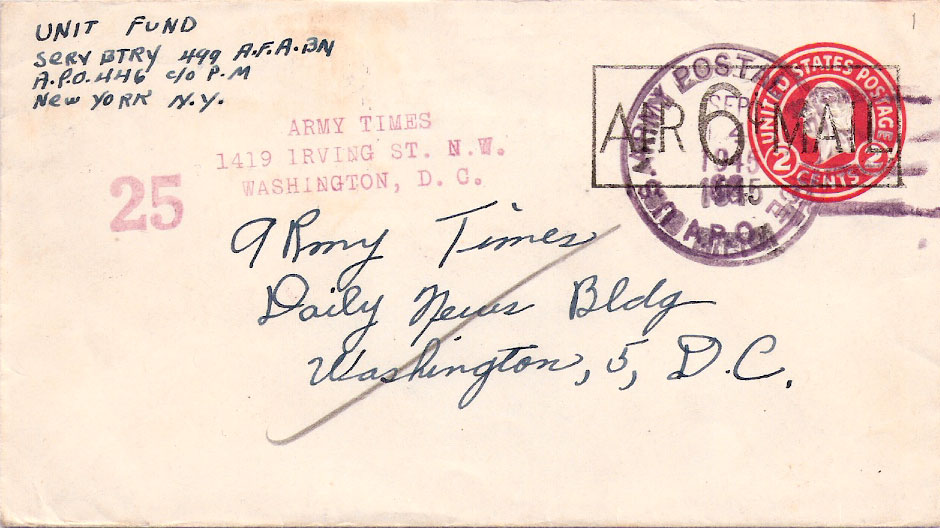 UNIT FUND
Serv BTRY 499 A.F.A.BN
A.P.O. 446 c/o P.M
New YORK N.Y.
1
ARMY TIMES
1419 IRVING ST. N.W.
WASHINGTON, D. C.
25
U.S. ARMY POSTAL
SEP
4
1945
1945
A.P.O.
AIR 6¢ MAIL
UNITED STATES POSTAGE
2 CENTS 2
Army Times
Daily News Bldg
Washington, 5, D.C.